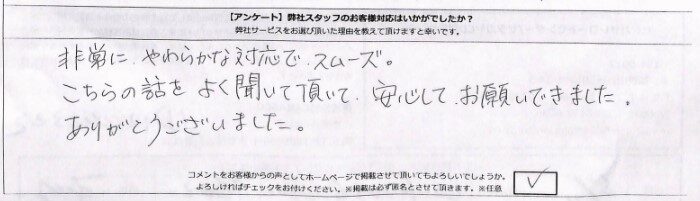 【アンケート】弊社スタッフのお客様対応はいかがでしたか?
弊社サービスをお選び頂いた理由を教えて頂けますと幸いです。
非常に、やわらかな対応で、スムーズ。
こちらの話をよく聞いて頂いて、安心して、お願いできました。
ありがとうございました。
コメントをお客様からの声としてホームページで掲載させて頂いてもよろしいでしょうか。
よろしければチェックをお付けください。※掲載は必ず匿名とさせて頂きます。※任意